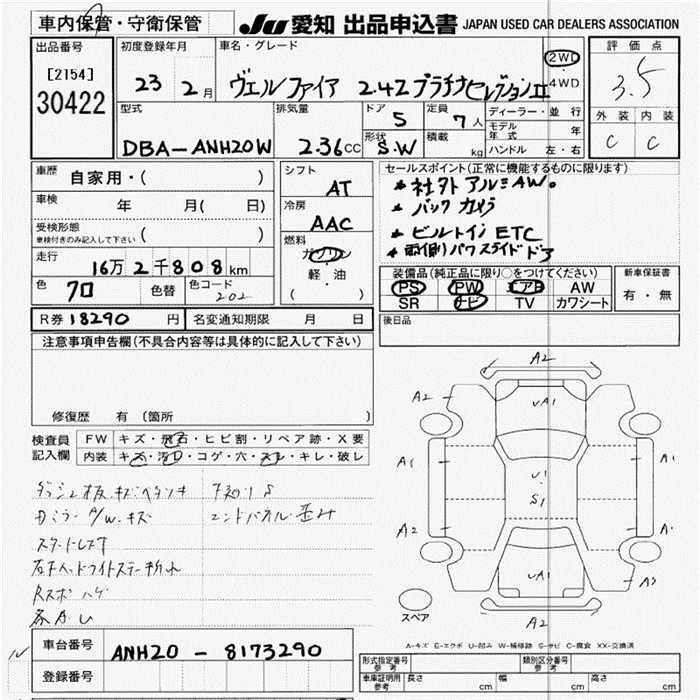 車内保管・守衛保管
JU 愛知 出品申込書 JAPAN USED CAR DEALERS ASSOCIATION
出品番号
[2154]
30422
初度登録年月
23 2月
車名・グレード
ヴェルファイア 2.4Z プラチナセレクションII
2WD
・
4WD
評価点
3.5
外装 内装
C C
型式
DBA-ANH20W
排気量
2.36cc
ドア
5
形状
S.W
定員
7人
積載
kg
ディーラー・並行
モデル年式 年
ハンドル 左・右
車歴
自家用・( )
車検 年 月( 日)
受検形態
車検付きのみ記入して下さい ( )
走行
16万2千808km
色 クロ 色替 色コード 202
シフト
AT
冷房
AAC
燃料
ガソリン
・
軽・油
( )
セールスポイント(正常に機能するものに限ります)
* 社外アルミAW。
* バックカメラ
* ビルトインETC
* 両側パワスライドドア
装備品(純正品に限り○をつけてください)
PS PW エアB AW
SR ナビ TV カワシート
新車保証書
有・無
R券 18290円 名変通知期限 月 日
後日品
注意事項申告欄(不具合内容等は具体的に記入して下さい)
修復歴 有 〔箇所 〕
検査員記入欄
FW キズ・飛石・ヒビ割・リペア跡・X要
内装 キズ・汚れ・コゲ・穴・スレ・キレ・破レ
ダッシュ板.キズベタツキ 下廻りS
Dミラー P/W.キズ エンドパネル歪み
ステアリングスレ
右下ヘッドライトステー折れ
RスポハゲA
A2
A2
UA1
A1
A1
U1
S1
A2
A1
UA1
A3
A2
スペア
A-キズ E-エクボ U-凹み W-補修跡 S-サビ C-腐食 XX-交換済
車台番号 ANH20 - 8173290
登録番号
形式指定番号 参考
類別区分番号 参考
車庫証明用 参考 長さ cm 幅 cm 高さ cm